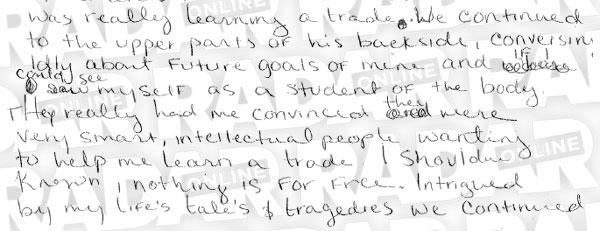 was really learning a trade. We continued
to the upper parts of his backside, conversin
Idly about future goals of mine and if I
could see myself as a student of the body.
They really had me convinced they were
very smart, intellectual people wanting
to help me learn a trade I should
Known, nothing is for free. Intrigued
by my life's tale's & tragedies we continued
RADAR ONLINE